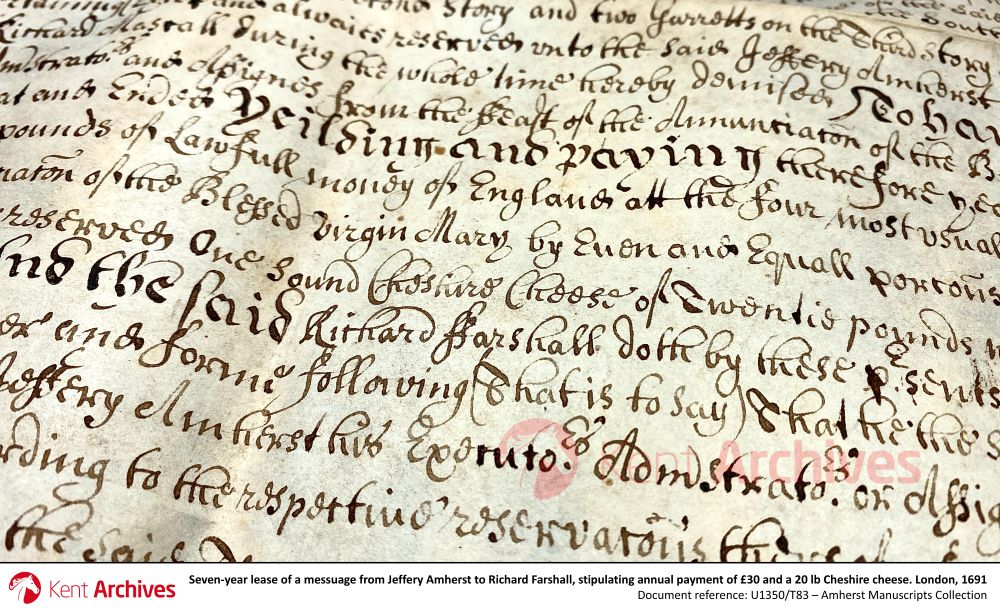 and alwaies reserved Story and two Garretts on the third Story
Richard Marstall during reserved unto the said Jeffery Amherst
and Assignes the whole time hereby demised To hav
at and Ended from the Feast of the Annuntiacon of the B
Yeilding and paying therefore yea
pounds of Lawfull money of England att the four most usual
nacon of the Blessed Virgin Mary by Even and Equall porcons
reserved One Sound Cheshire Cheese of Twentie pounds
And the said Richard Farshall doth by these p.sents
er and forme following (That is to say) That he the s
Jeffery Amherst his Executo.rs Admstrato.rs or Assig
rding to the respective reservacons
the said
Kent Archives
Kent Archives
Seven-year lease of a messuage from Jeffery Amherst to Richard Farshall, stipulating annual payment of £30 and a 20 lb Cheshire cheese. London, 1691
Document reference: U1350/T83 – Amherst Manuscripts Collection